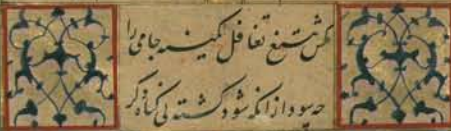 مکش به تیغ تغافل کمینه جامی را
چه سود از آنکه شود کشته بی گناه دگر